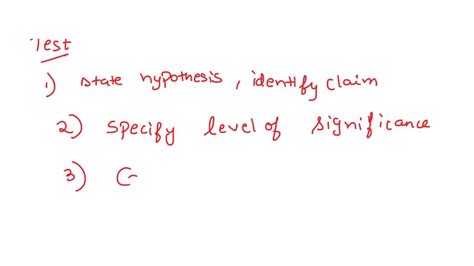 Test
1) state hypothesis, identify claim
2) specify level of significance
3) C